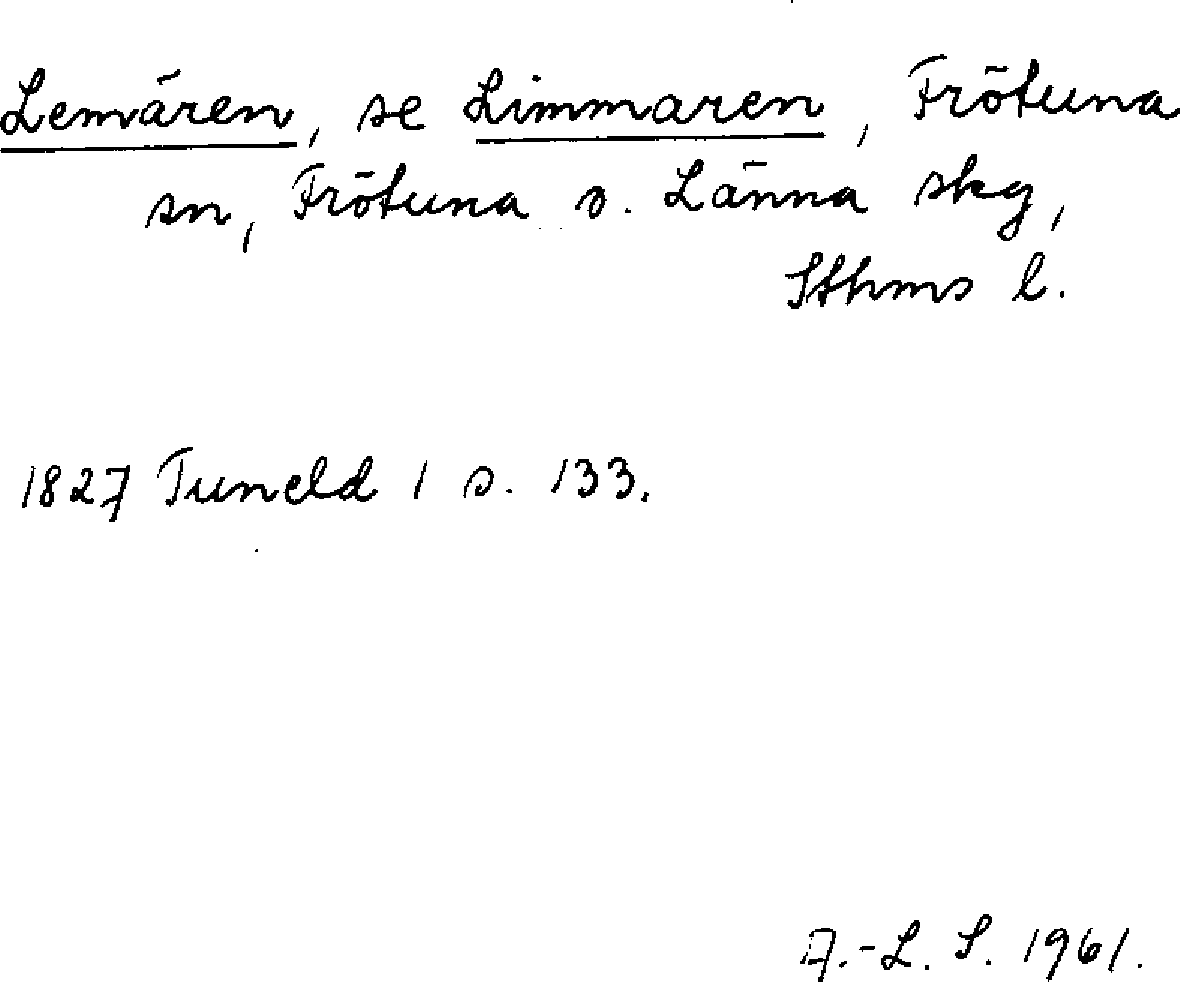 Lemären, se Limmaren, Frötuna
sn, Frötuna o. Länna skg,
Sthms l.
1827 Tuneld 1 s. 133.
A.-L. S. 1961.